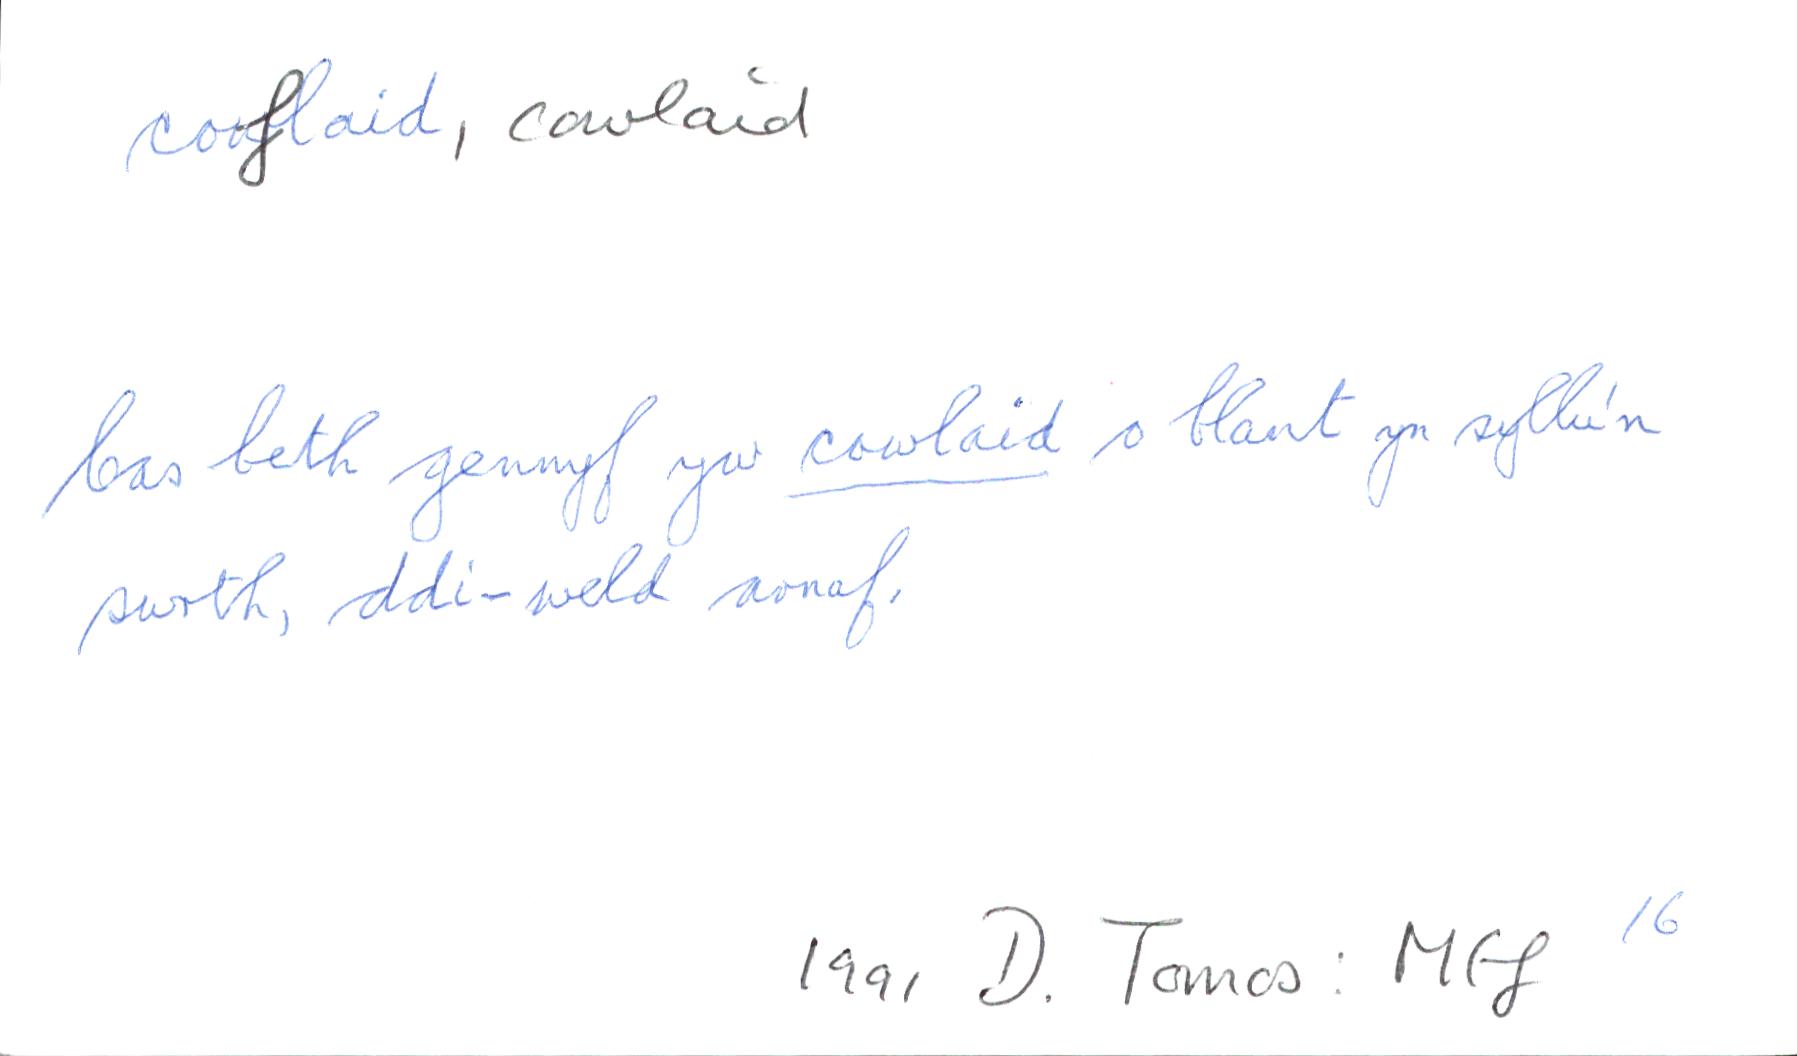 coflaid, cowlaid
Cas beth gennyf yw cowlaid o blant yn syllu'n
swrth, ddi-weld arnaf.
1991 D. Tomos: M 16